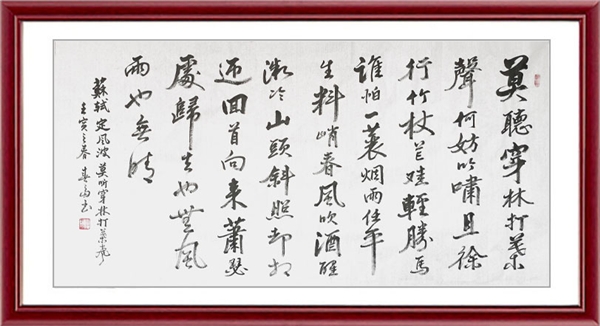 莫聽穿林打葉
聲何妨吟嘯且徐
行竹杖芒鞋輕勝馬
誰怕一蓑烟雨任平
生料峭春風吹酒醒
微冷山頭斜照却相
迎回首向来蕭瑟
處歸去也無風
雨也無晴
蘇軾 定风波 莫听穿林打葉聲
壬寅之春